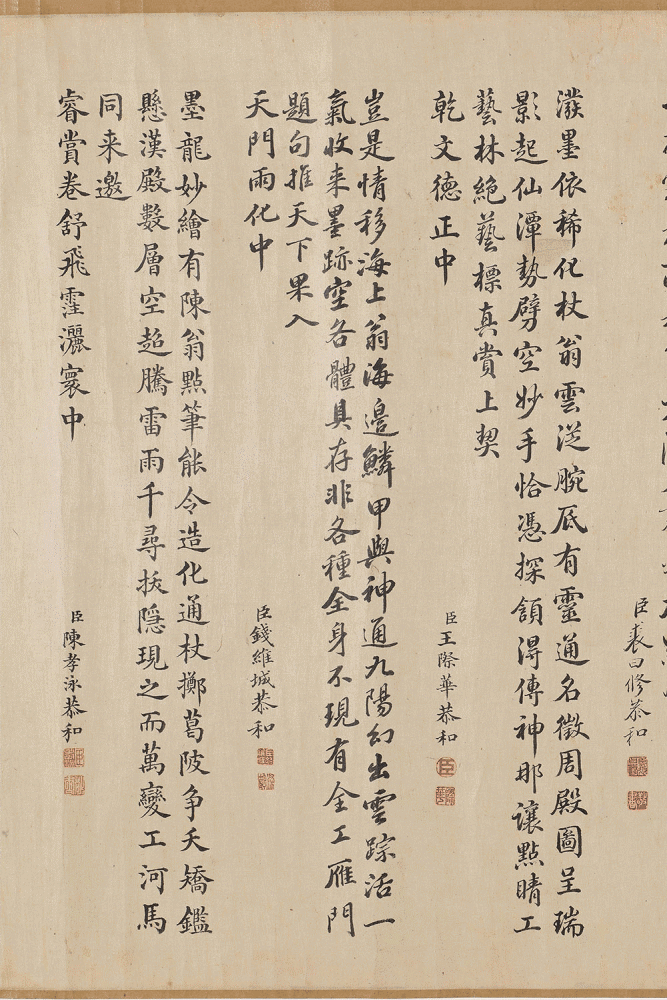 臣裘曰修恭和
潑墨依稀化杖翁雲從腕底有靈通名徵周殿圖呈瑞
影起仙潭勢劈空妙手恰憑探頷得傳神那讓點睛工
藝林絕藝標真賞上契
乾文德正中
臣王際華恭和
豈是情移海上翁海邊鱗甲與神通九陽幻出雲踪活一
氣收来墨跡空各體具存非各種全身不現有全工雁門
題句推天下果入
天門雨化中
臣錢維城恭和
墨龍妙繪有陳翁點筆能令造化通杖擲葛陂争夭矯鑑
懸漢殿數層空超騰雷雨千尋拔隱現之而萬變工河馬
同来邀
睿賞卷舒飛霔灑寰中
臣陳孝泳恭和